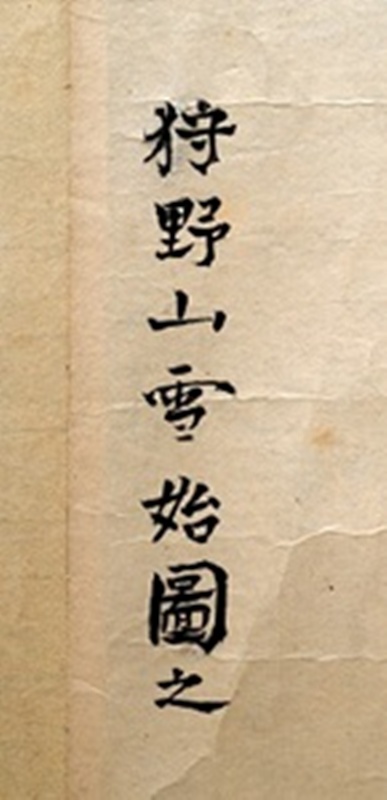 狩野山雪始圖之